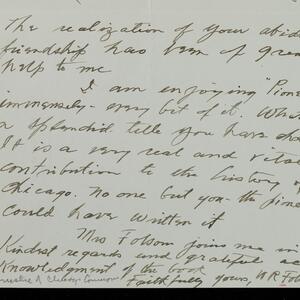 The realization of your abid
friendship has been of grea
help to me
I am enjoying "Pione
immensely - every bit of it. Wha
a splendid title you have cho
It is a very real and vita
contribution to the history
Chicago. No one but you - the pione
could have written it
Mrs Folsom joins me in
Kindest regards and grateful ac
Knowledgment of the book
Faithfully yours, WR Fol